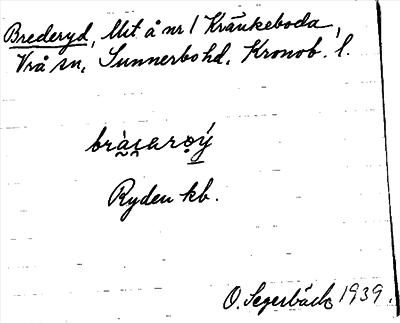 Brederyd, Mit å nr 1 Kråkeboda,
Vrå sn, Sunnerbo hd. Kronob. l.
Ryden kb.
O. Segerbäck 1939.